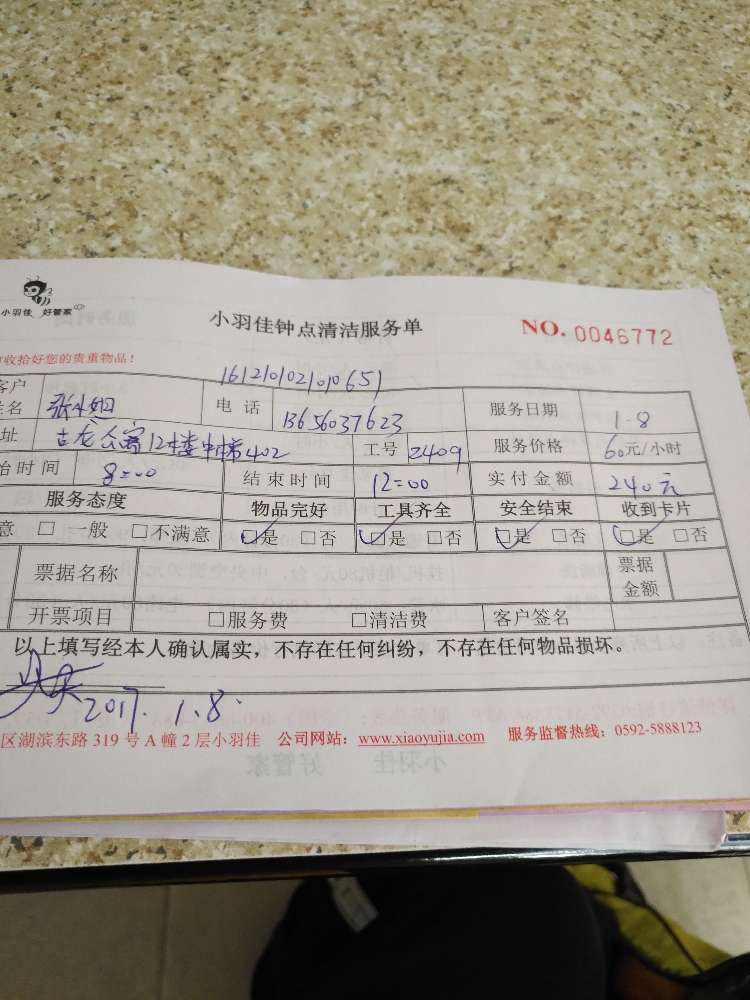 小羽佳 好管家
小羽佳钟点清洁服务单 NO. 0046772
收拾好您的贵重物品！
161210102101065１
客户
姓名 张小姐 电话 13656037623 服务日期 1.8
址 古龙公寓12#楼 402 工号 2409 服务价格 60元/小时
始时间 8:00 结束时间 12:00 实付金额 240元
服务态度 物品完好 工具齐全 安全结束 收到卡片
意 □ 一般 □不满意 □是 □否 □是 □否 □是 □否 □是 □否
票据名称 票据金额
开票项目 □服务费 □清洁费 客户签名
以上填写经本人确认属实，不存在任何纠纷，不存在任何物品损坏。
2017.1.8.
区湖滨东路 319 号 A 幢 2 层小羽佳 公司网站：www.xiaoyujia.com 服务监督热线：0592-5888123